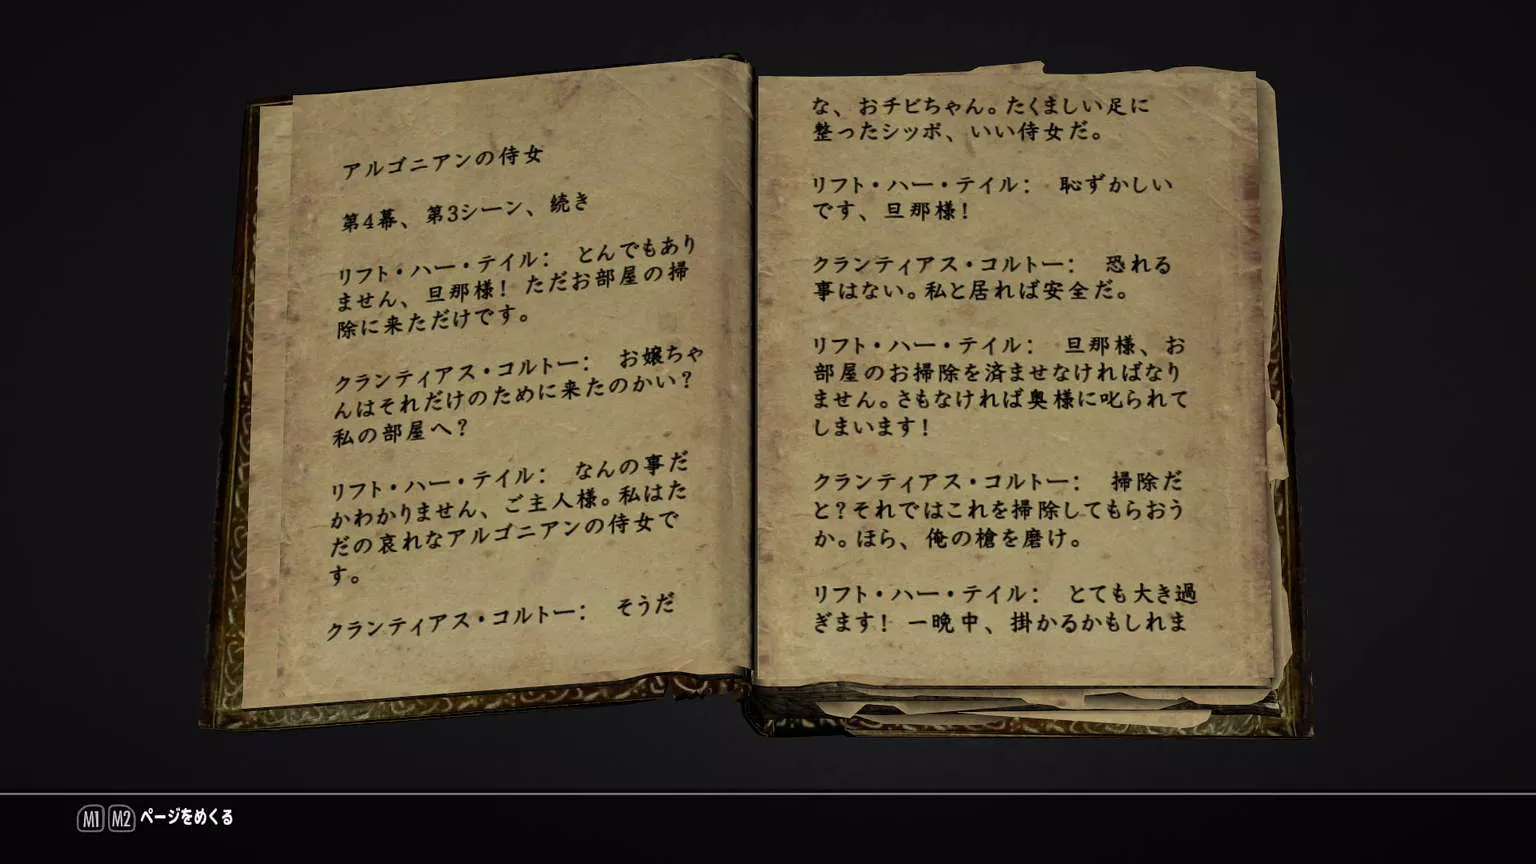 アルゴニアンの侍女
第4幕、第3シーン、続き
リフト・ハー・テイル： とんでもあり
ません、旦那様！ただお部屋の掃
除に来ただけです。
クランティアス・コルトー： お嬢ちゃ
んはそれだけのために来たのかい？
私の部屋へ？
リフト・ハー・テイル： なんの事だ
かわかりません、ご主人様。私はた
だの哀れなアルゴニアンの侍女で
す。
クランティアス・コルトー： そうだ
な、おチビちゃん。たくましい足に
整ったシッポ、いい侍女だ。
リフト・ハー・テイル： 恥ずかしい
です、旦那様！
クランティアス・コルトー： 恐れる
事はない。私と居れば安全だ。
リフト・ハー・テイル： 旦那様、お
部屋のお掃除を済ませなければなり
ません。さもなければ奥様に叱られて
しまいます！
クランティアス・コルトー： 掃除だ
と？それではこれを掃除してもらおう
か。ほら、俺の槍を磨け。
リフト・ハー・テイル： とても大き過
ぎます！一晩中、掛かるかもしれま
M1 M2 ページをめくる